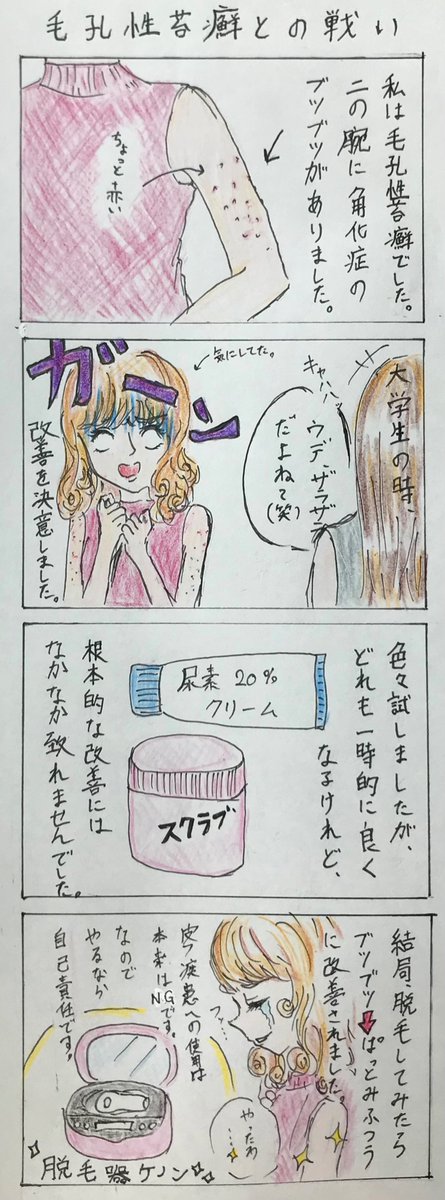 毛孔性苔癬との戦い
私は毛孔性苔癬でした。
二の腕に角化症の
ブツブツがありました。
ちょっと赤い
大学生の時、
キャハハッ
ウデ、ザラザラ
だよねて(笑)
気にしてた。
ガーン
改善を決意しました。
色々試しましたが、
どれも一時的に良く
なるけれど、
尿素 20%
クリーム
スクラブ
根本的な改善には
なかなか致れませんでした。
結局、脱毛してみたら
ブツブツ➡ぱっとみふつう
に改善されました。
やったわ
……
皮フ疾患への使用は
本来はNGです。
なので
やるなら
自己責任です。
脱毛器ケノン